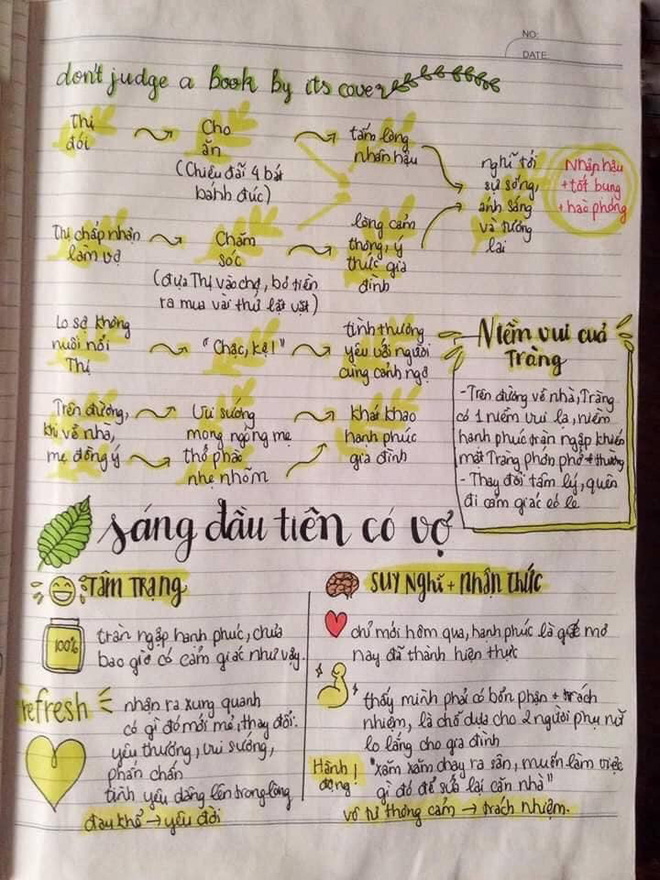 NO:
DATE
don't judge a book by its cover
Thị
đói
Cho
ăn
(Chiêu đãi 4 bát
bánh đúc)
tấm lòng
nhân hậu
nghĩ tới
sự sống,
ánh sáng
và tương
lai
Nhân hậu
+ tốt bụng
+ hào phóng
Thị chấp nhận
làm vợ
Chăm
sóc
(đưa Thị vào chợ, bỏ tiền
ra mua vài thứ lặt vặt)
lòng cảm
thông, ý
thức gia
đình
Lo sợ không
nuôi nổi
Thị
"Chậc, kệ!"
tình thương
yêu với người
cùng cảnh ngộ
Trên đường,
khi về nhà,
mẹ đồng ý
Vui sướng
mong ngóng mẹ
thở phào
nhẹ nhõm
khát khao
hạnh phúc
gia đình
Niềm vui của
Tràng
- Trên đường về nhà, Tràng
có 1 niềm vui lạ, niềm
hạnh phúc tràn ngập khiến
mặt Tràng phớn phở + thường
- Thay đổi tâm lý, quên
đi cảm giác có lẽ
sáng đầu tiên có vợ
TÂM TRẠNG
100%
tràn ngập hạnh phúc, chưa
bao giờ có cảm giác như vậy.
refresh
nhận ra xung quanh
có gì đó mới mẻ, thay đổi.
yêu thương, vui sướng,
phấn chấn
tình yêu dâng lên trong lòng
đau khổ → yêu đời
SUY NGHĨ + NHẬN THỨC
chỉ mới hôm qua, hạnh phúc là giấc mơ
nay đã thành hiện thực
thấy mình phải có bổn phận + trách
nhiệm, là chỗ dựa cho 2 người phụ nữ
lo lắng cho gia đình
Hành
động!
"xăm xăm chạy ra sân, muốn làm việc
gì đó để sửa lại căn nhà"
vô tư thông cảm → trách nhiệm.